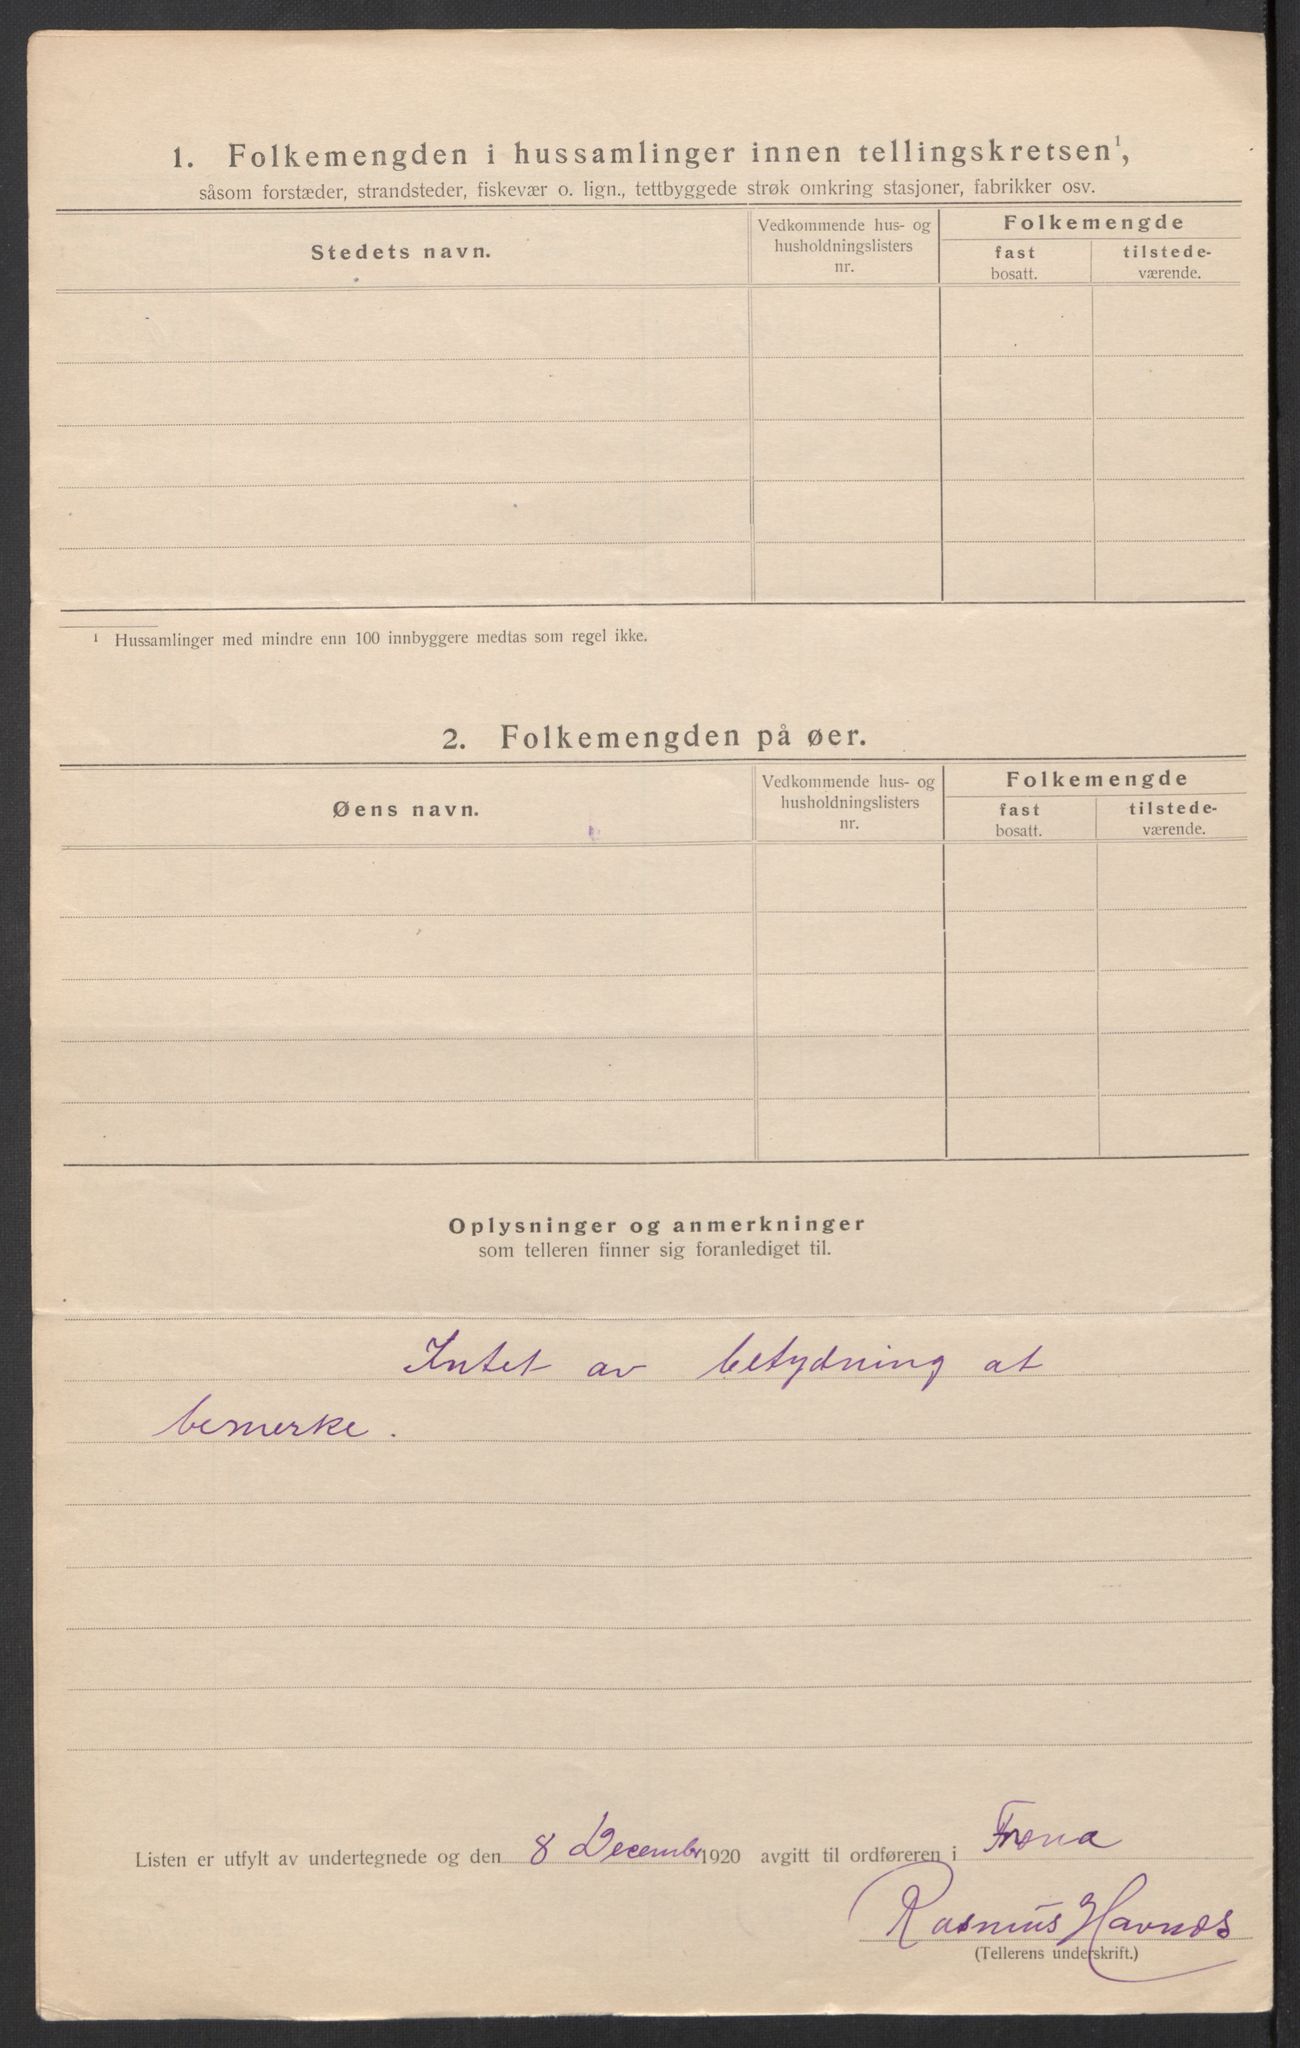 1. Folkemengden i hussamlinger innen tellingskretsen¹,
såsom forstæder, strandsteder, fiskevær o. lign., tettbyggede strøk omkring stasjoner, fabrikker osv.
Stedets navn.
Vedkommende hus- og
husholdningslisters
nr.
Folkemengde
fast
bosatt.
tilstede-
værende.
¹ Hussamlinger med mindre enn 100 innbyggere medtas som regel ikke.
2. Folkemengden på øer.
Øens navn.
Vedkommende hus- og
husholdningslisters
nr.
Folkemengde
fast
bosatt.
tilstede-
værende.
Oplysninger og anmerkninger
som telleren finner sig foranlediget til.
Intet av betydning at
bemerke.
Listen er utfylt av undertegnede og den 8 December 1920 avgitt til ordføreren i Fræna
Rasmus Havnes
(Tellerens underskrift.)